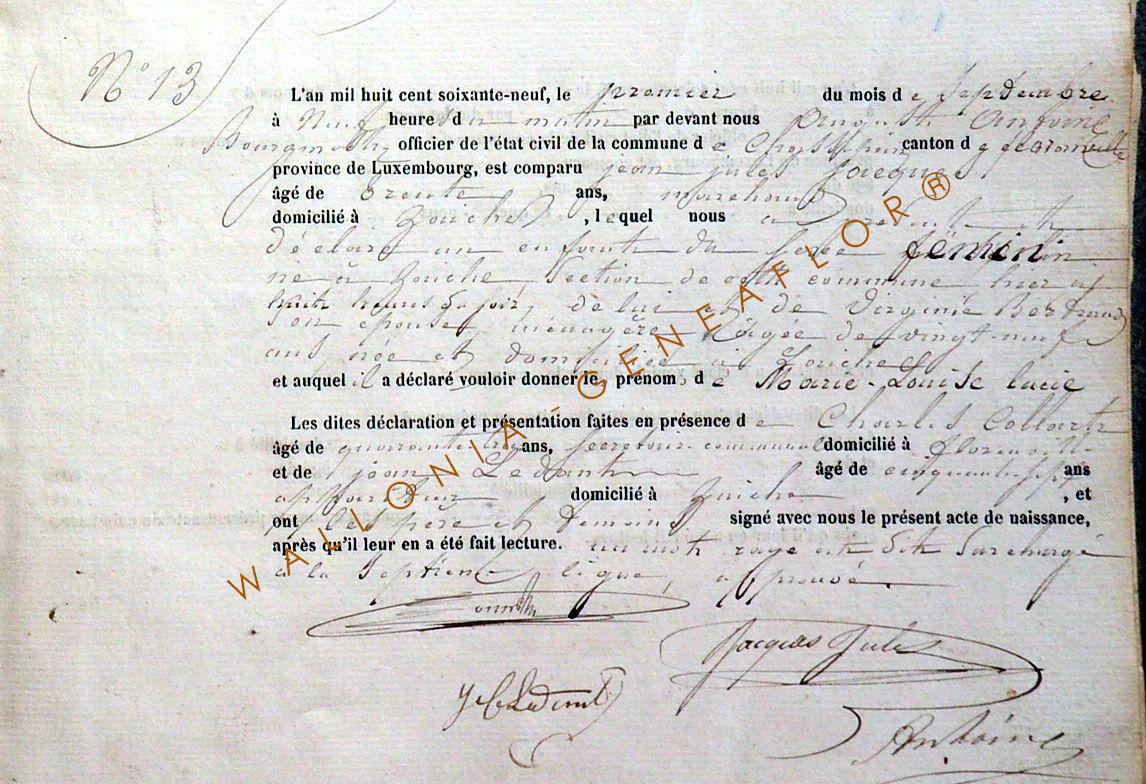 N° 13
L'an mil huit cent soixante-neuf, le premier du mois de Septembre
à Neuf heures du matin par devant nous Auguste Antoine
Bourgmestre officier de l'état civil de la commune de canton de
province de Luxembourg, est comparu jean jules Jacques
âgé de trente ans, marchand
domicilié à , lequel nous a présenté et
déclaré un enfant du Sexe féminin
né à section de cette commune, hier à
huit heures du soir, de lui et de Virginie Bertrand
son épouse, ménagère âgée de vingt-neuf
ans, née et domiciliée à
et auquel il a déclaré vouloir donner les prénoms de Marie-Louise lucie
Les dites déclaration et présentation faites en présence de Charles Collart
âgé de quarante ans, Secrétaire communal domicilié à Florenville
et de jean âgé de cinquante sept ans
domicilié à , et
ont les père et témoins signé avec nous le présent acte de naissance,
après qu'il leur en a été fait lecture. un mot rayé et dit Surchargé
à la Septième ligne, approuvé.
Jacques Jules
Antoine
WALLONIA-GENEAFLOR®